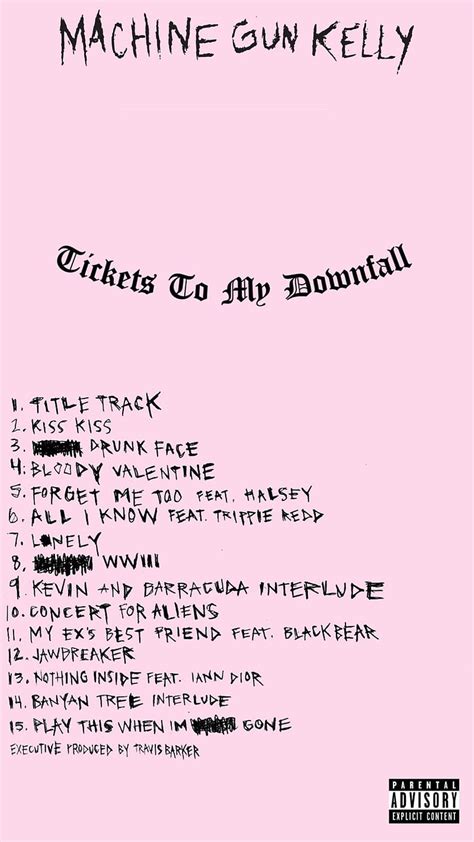 MACHINE GUN KELLY
Tickets To My Downfall
1. TITLE TRACK
2. KISS KISS
3. DRUNK FACE
4. BLOODY VALENTINE
5. FORGET ME TOO FEAT. HALSEY
6. ALL I KNOW FEAT. TRIPPIE REDD
7. LONELY
8. WWIII
9. KEVIN AND BARRACUDA INTERLUDE
10. CONCERT FOR ALIENS
11. MY EX'S BEST FRIEND FEAT. BLACKBEAR
12. JAWBREAKER
13. NOTHING INSIDE FEAT. IANN DIOR
14. BANYAN TREE INTERLUDE
15. PLAY THIS WHEN IM GONE
EXECUTIVE PRODUCED BY TRAVIS BARKER
PARENTAL
ADVISORY
EXPLICIT CONTENT